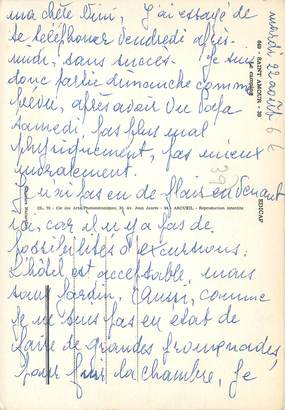 ma chère Mimi, J'ai essayé de
te téléphoner vendredi après-
midi, sans succès. Je suis
donc partie dimanche comme
prévu, après avoir vu
samedi, pas plus mal
physiquement, pas mieux
moralement.
Je n'ai pas eu de flair en venant
ici, car il n'y a pas de
possibilités d'excursions.
L'hôtel est acceptable, mais
sans jardin. Aussi, comme
je ne suis pas en état de
faire de grandes promenades,
pour fuir la chambre, je
mardi 22 août 66
649 - SAINT AMOUR - 39
EDICAP
(CL. 70 - Cie des Arts Photomécaniques, Av. Jean Jaurès - ARCUEIL - Reproduction interdite